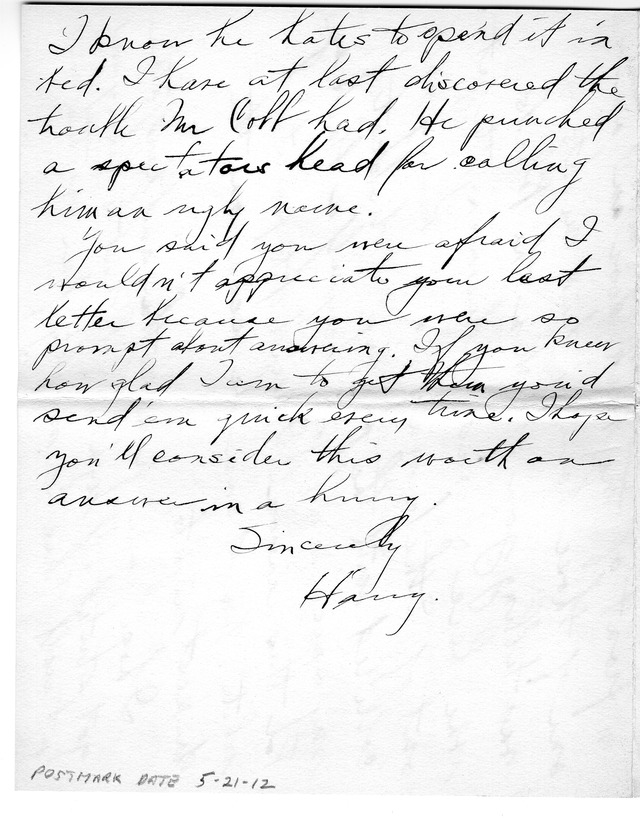 I know he hates to spend it in
bed. I have at last discovered the
trouble Mr Cobb had. He punched
a spectators head for calling
him an ugly name.
You said you were afraid I
wouldn't appreciate your last
letter because you were so
prompt about answering. If you knew
how glad I am to get them you'd
send 'em quick every time. I hope
you'll consider this worth an
answer in a hurry.
Sincerely
Harry.
POSTMARK DATE 5-21-12